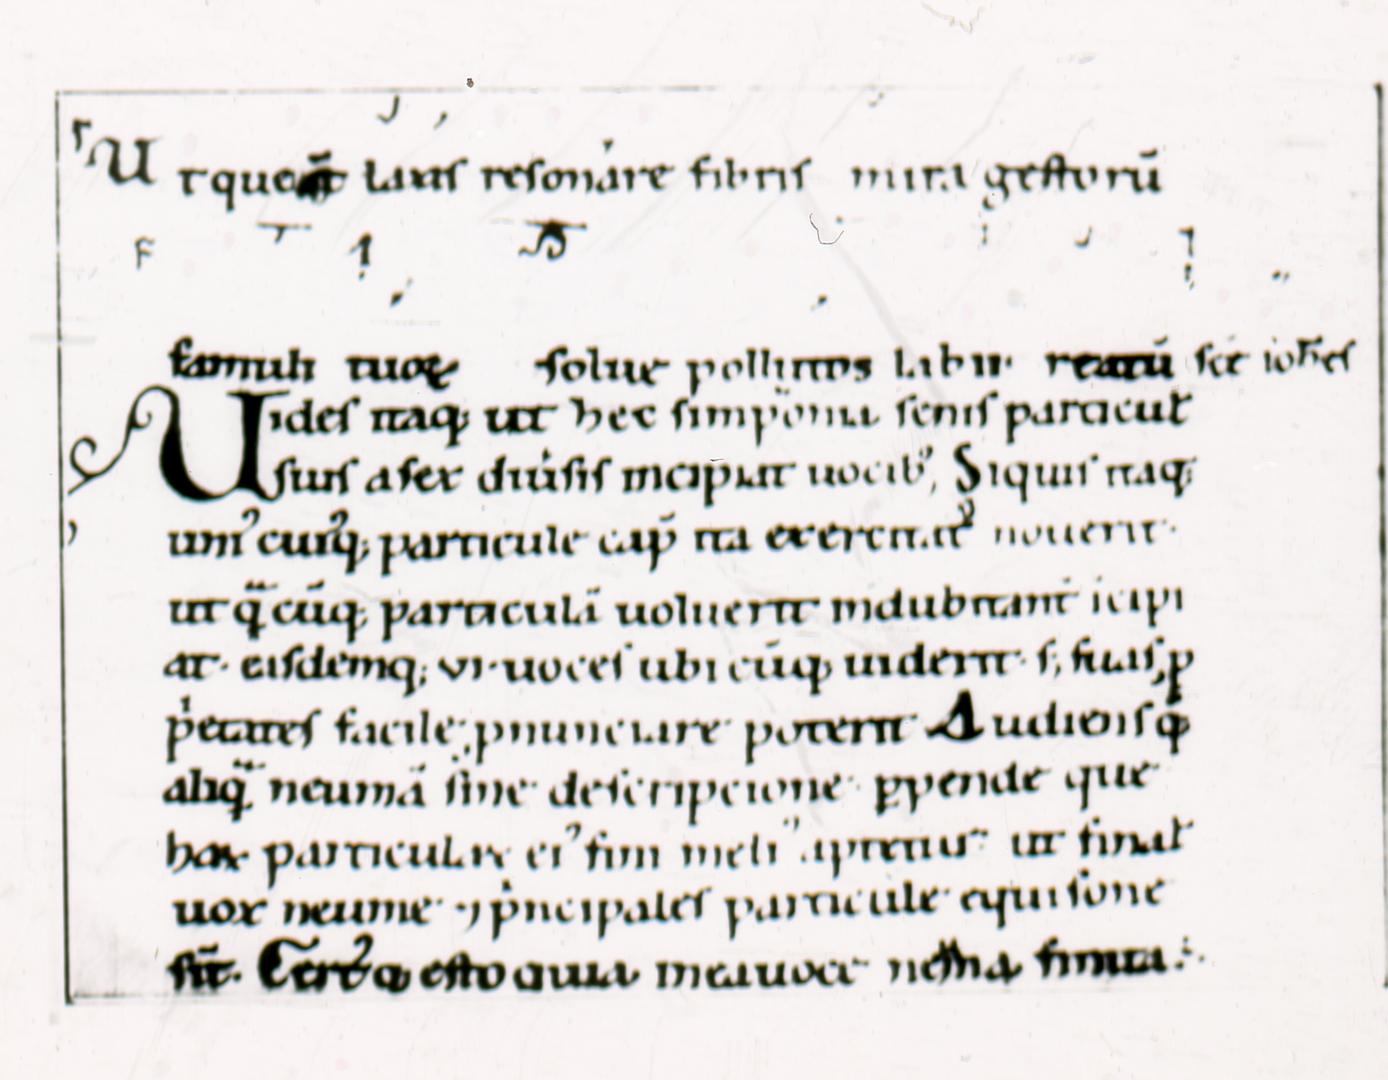 Ut queāt laxis resonare fibris mira gestorū
F
famuli tuorꝫ solue polluti labii reatū scē ioh̄es
Uides itaq; ut hec simphonia senis particul̄
suis a sex diūsis incipiat uocib; Siquis itaq;
uni᾿cuiꝰq; particule cap̄ ita exercitat᾿ nouerit·
ut q̄cūq; particulā uoluerit indubitant̄ icipi
at· eisdemq; vi·uoces ubi cūq; uiderit· s; suas, p
p̄etates facile pnunciare poterit Audiens q̄
aliq̄ neumā sine descripcione· ppende que
harꝫ particularꝫ ei᾿ fini meli᾿ aptetur ut final̄
uox neume· ⁊ p̄ncipales particule equisone
sīt· Certꝰq esto quia uoce finita